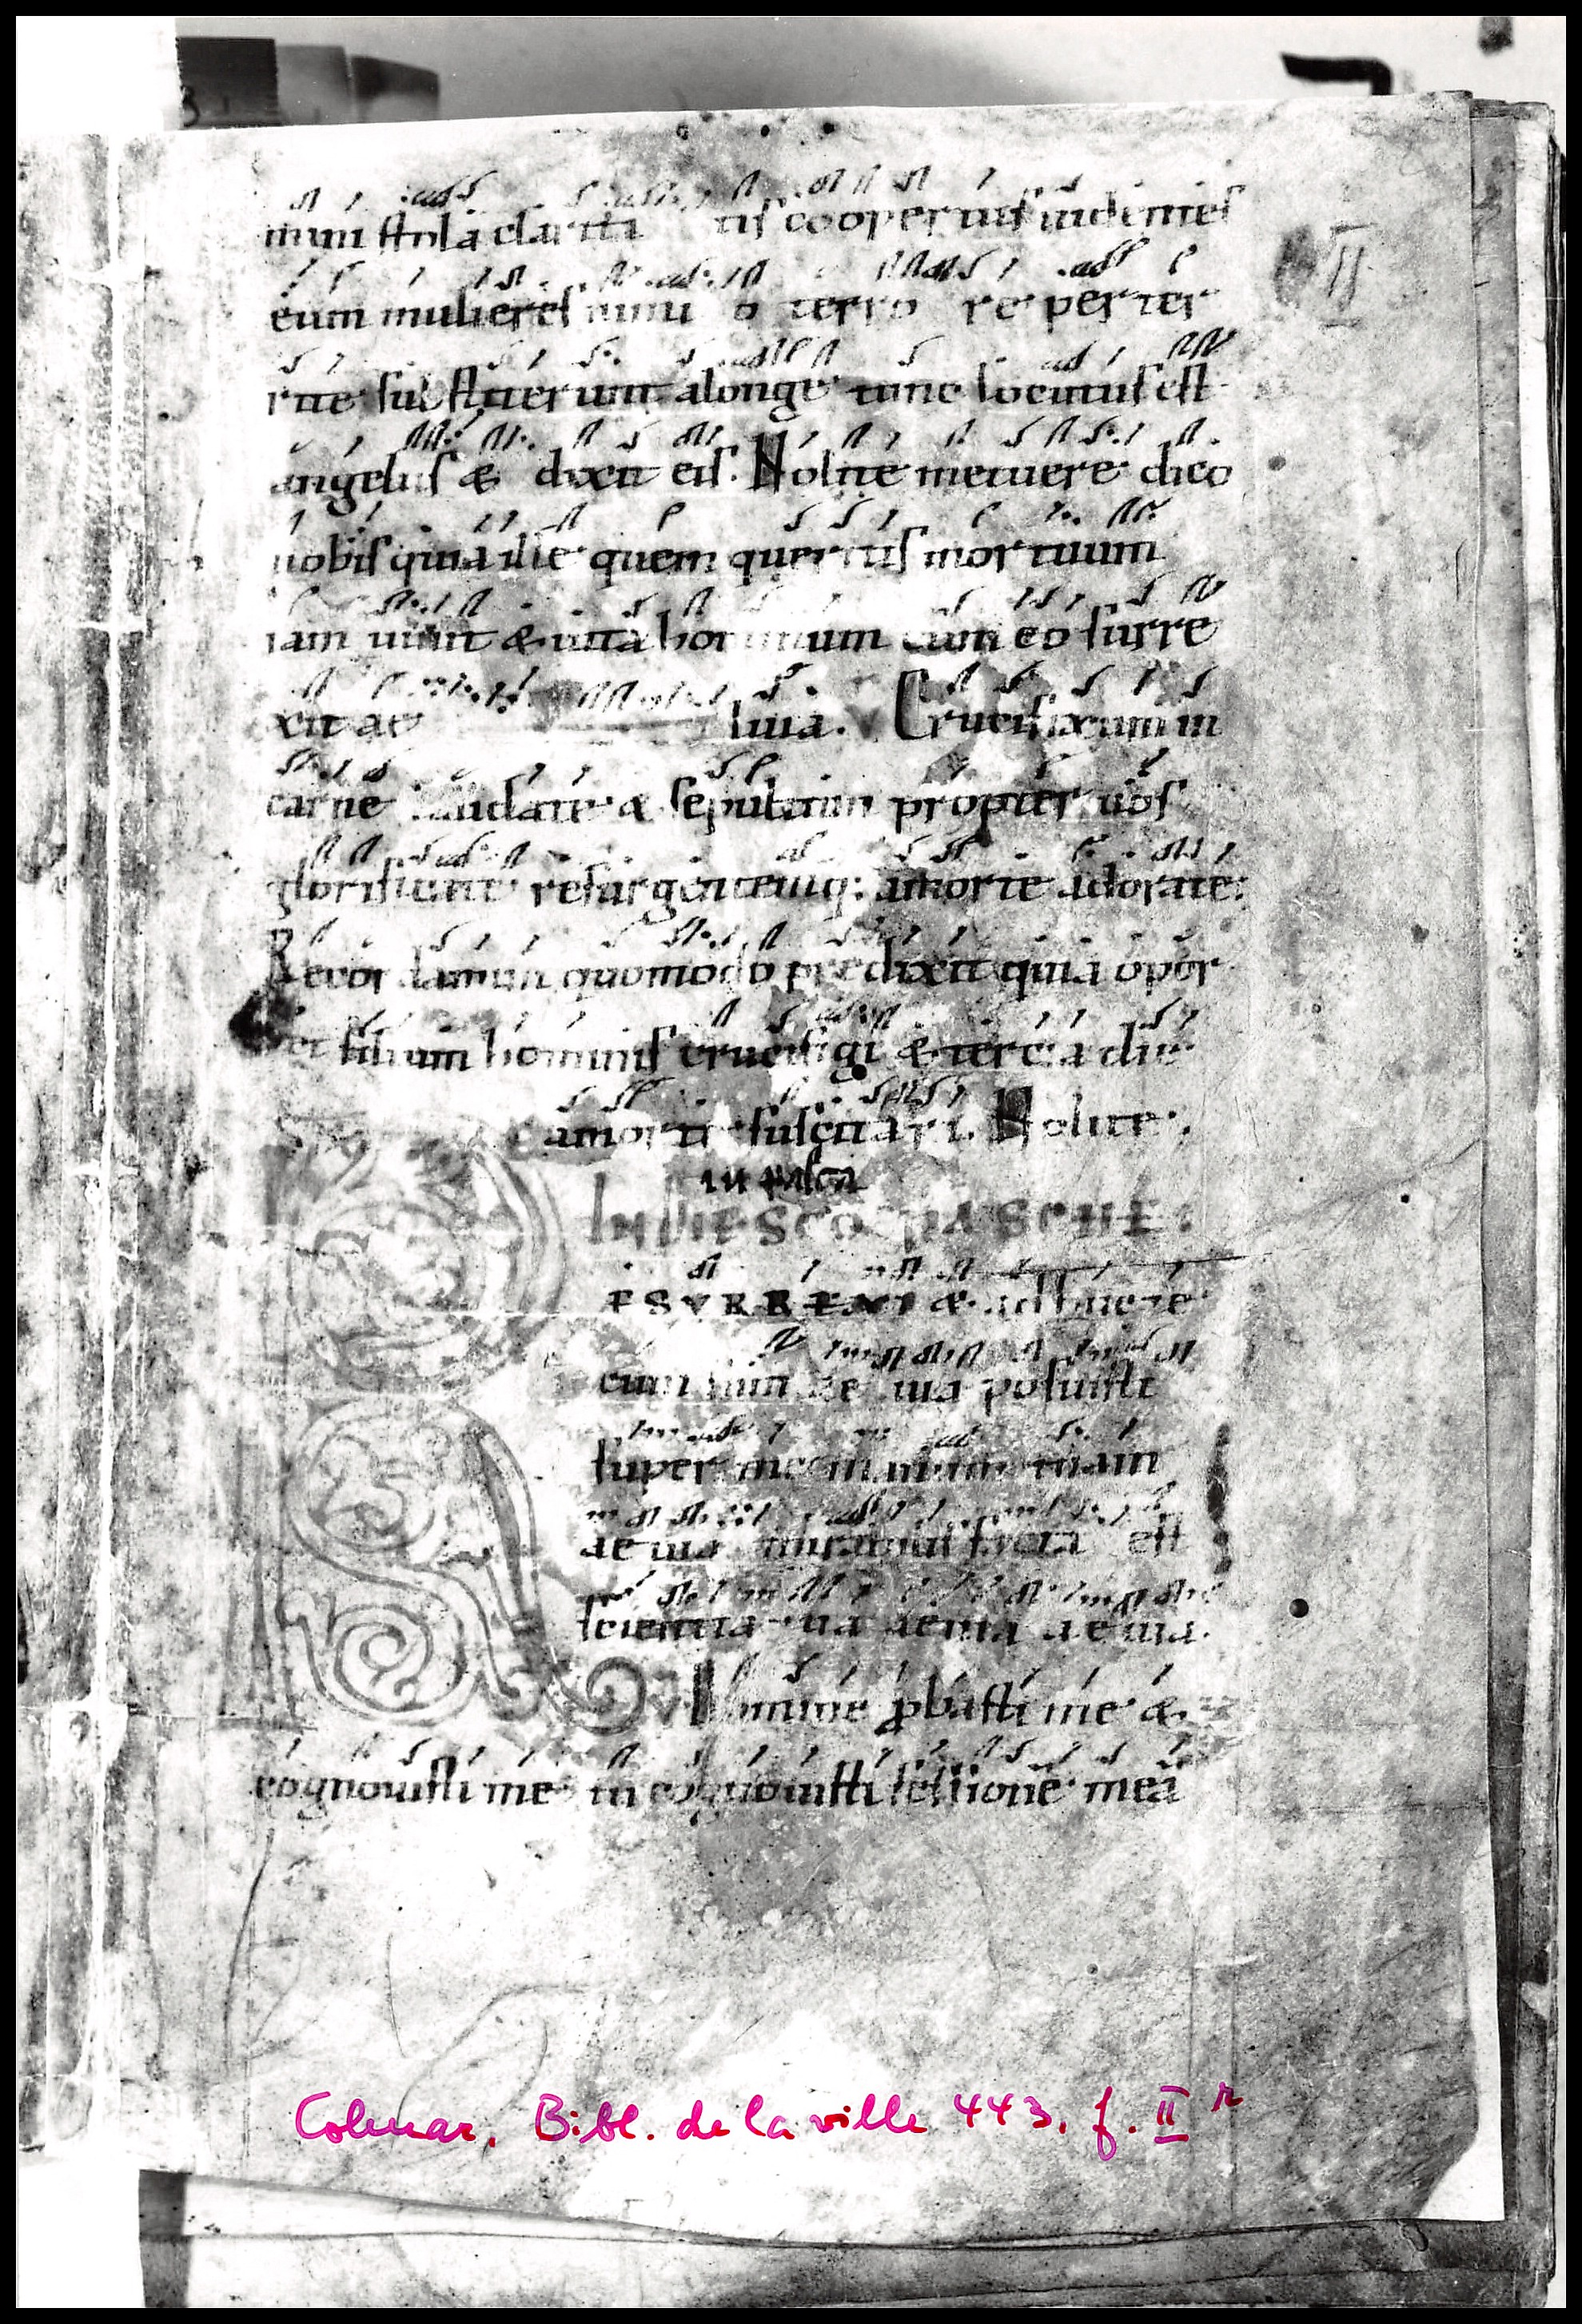 mum stola clarita tis coopertus uidentes
eum mulieres nimi o terro re perter
rite substiterunt alonge tunc locutus est
angelus & dixit eis. Nolite metuere dico
uobis quia ille quem queritis mortuum
iam uiuit & uita hominum cum eo surre
xit ae luia. V Crucifixum in
carne laudate & sepultum propter uos
glorificate resurgentemq: amorte adorate:
Recor damini quomodo predixit quia opor
tet filium hominis crucifigi & tercia die
amorte suscitari. Nolite.
IN DIE SCO PASCHE:
ESURREXI & adhuc te
cum sum ae uia posuisti
super me manum tuam
ae uia mirabilis facta est
scientia tua aeuia aeuia.
V Domine pbasti me &
cognouisti me tu cognouisti sessione meā
II
Colmar, Bibl. de la ville 443, f. II r